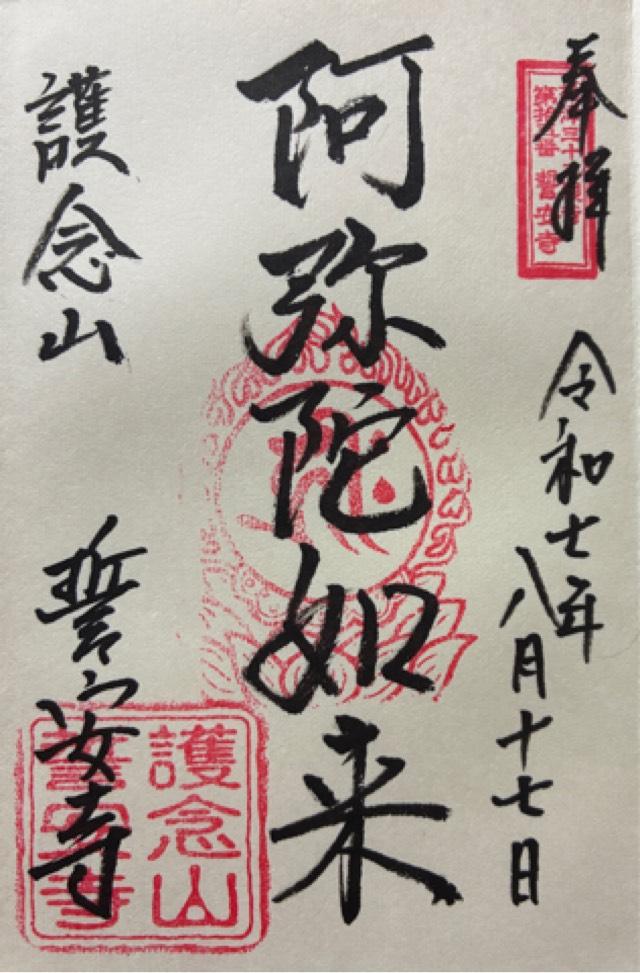 奉拝
令和七年
八月十七日
阿弥陀如来
護念山
誓安寺
護念山
誓安寺